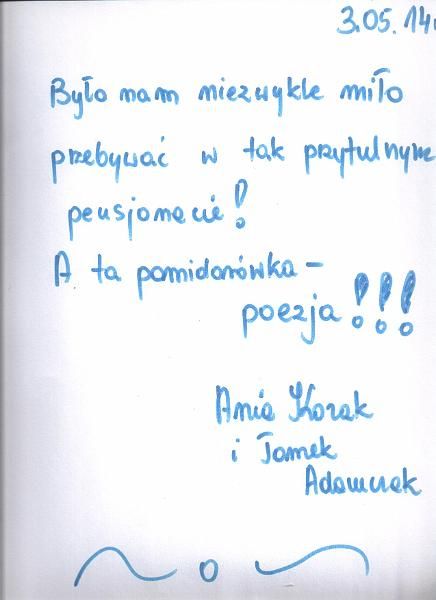 3.05.14r
Było nam niezwykle miło
przebywać w tak przytulnym
pensjonacie!
A ta pomidorówka -
poezja!!!
Ania Kozak
i Tomek
Adamczak